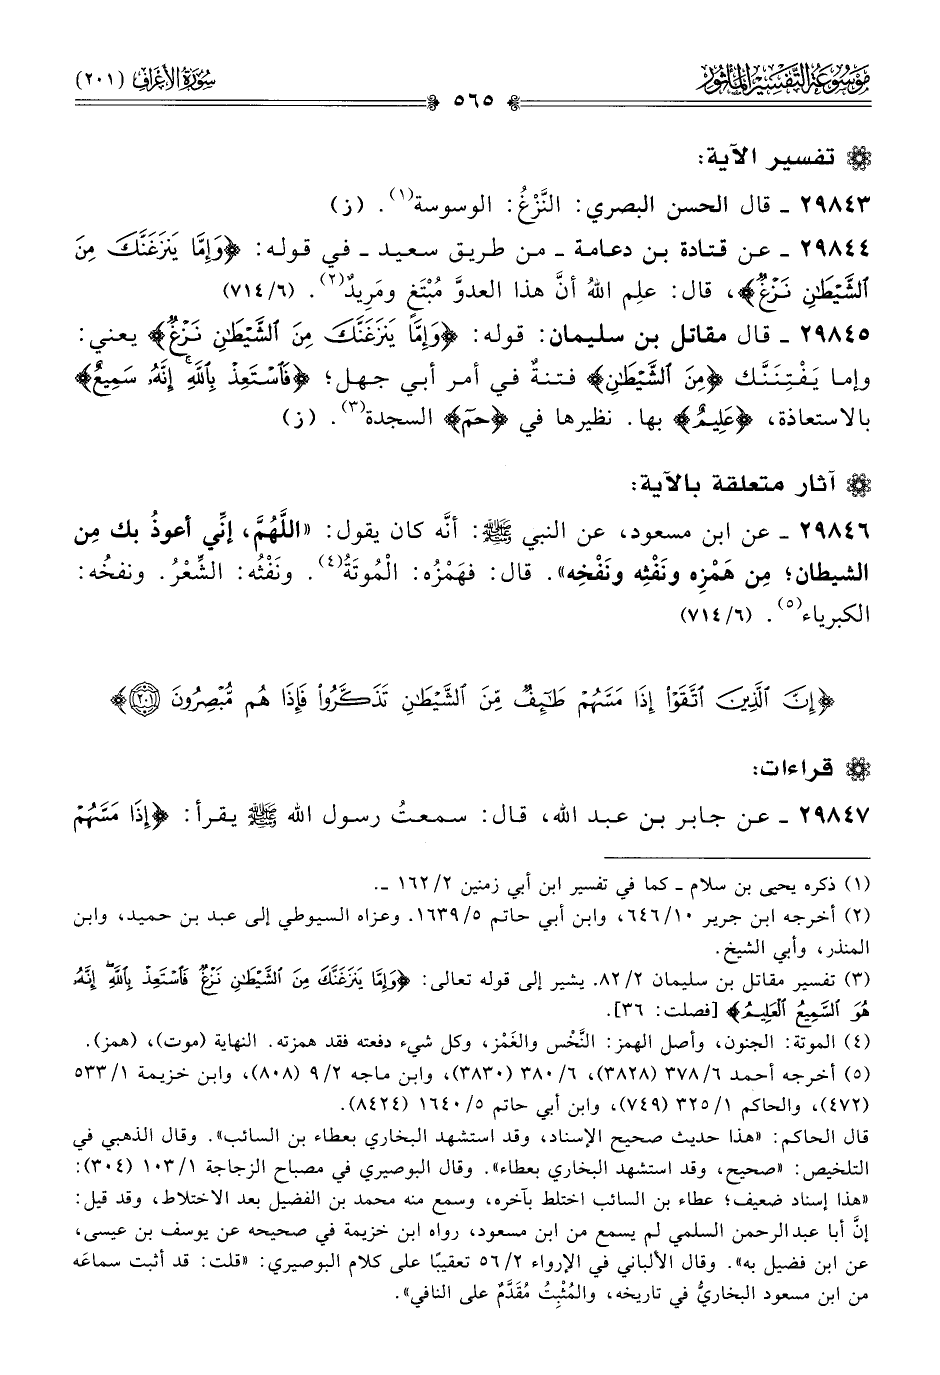 موسوعة التفسير المأثور
سورة الأعراف (٢٠١)
٥٦٥
تفسير الآية:
٢٩٨٤٣ ـ قال الحسن البصري: النَّزْغُ: الوسوسة(١). (ز)
٢٩٨٤٤ ـ عن قتادة بن دعامة ـ من طريق سعيد ـ في قوله: ﴿وَإِمَّا يَنزَغَنَّكَ مِنَ
ٱلشَّيْطَٰنِ نَزْغٌ﴾، قال: علِم اللهُ أنَّ هذا العدوَّ مُبْتَغٍ ومَرِيدٌ(٢). (٧١٤/٦)
٢٩٨٤٥ ـ قال مقاتل بن سليمان: قوله: ﴿وَإِمَّا يَنزَغَنَّكَ مِنَ ٱلشَّيْطَٰنِ نَزْغٌ﴾ يعني:
وإما يَفْتِنَنَّك ﴿مِنَ ٱلشَّيْطَٰنِ﴾ فتنةٌ في أمر أبي جهل؛ ﴿فَٱسْتَعِذْ بِٱللَّهِۚ إِنَّهُۥ سَمِيعٌ﴾
بالاستعاذة، ﴿عَلِيمٌ﴾ بها. نظيرها في ﴿حمٓ﴾ السجدة(٣). (ز)
آثار متعلقة بالآية:
٢٩٨٤٦ ـ عن ابن مسعود، عن النبي ﷺ: أنَّه كان يقول: «اللَّهُمَّ، إنِّي أعوذُ بك مِن
الشيطان؛ مِن هَمْزِه ونَفْثِه ونَفْخِه». قال: فهَمْزُه: الْمُوتَةُ(٤). ونَفْثُه: الشِّعْرُ. ونفخُه:
الكبرياء(٥). (٧١٤/٦)
﴿إِنَّ ٱلَّذِينَ ٱتَّقَوْا۟ إِذَا مَسَّهُمْ طَٰٓئِفٌ مِّنَ ٱلشَّيْطَٰنِ تَذَكَّرُوا۟ فَإِذَا هُم مُّبْصِرُونَ ٢٠١﴾
قراءات:
٢٩٨٤٧ ـ عن جابر بن عبد الله، قال: سمعتُ رسول الله ﷺ يقرأ: ﴿إِذَا مَسَّهُمْ
(١) ذكره يحيى بن سلام ـ كما في تفسير ابن أبي زمنين ١٦٢/٢ ـ.
(٢) أخرجه ابن جرير ٦٤٦/١٠، وابن أبي حاتم ١٦٣٩/٥. وعزاه السيوطي إلى عبد بن حميد، وابن
المنذر، وأبي الشيخ.
(٣) تفسير مقاتل بن سليمان ٨٢/٢. يشير إلى قوله تعالى: ﴿وَإِمَّا يَنزَغَنَّكَ مِنَ ٱلشَّيْطَٰنِ نَزْغٌ فَٱسْتَعِذْ بِٱللَّهِۖ إِنَّهُۥ
هُوَ ٱلسَّمِيعُ ٱلْعَلِيمُ﴾ [فصلت: ٣٦].
(٤) الموتة: الجنون، وأصل الهمز: النَّخْس والغَمْز، وكل شيء دفعته فقد همزته. النهاية (موت)، (همز).
(٥) أخرجه أحمد ٣٧٨/٦ (٣٨٢٨)، ٣٨٠/٦ (٣٨٣٠)، وابن ماجه ٩/٢ (٨٠٨)، وابن خزيمة ٥٣٣/١
(٤٧٢)، والحاكم ٣٢٥/١ (٧٤٩)، وابن أبي حاتم ١٦٤٠/٥ (٨٤٢٤).
قال الحاكم: «هذا حديث صحيح الإسناد، وقد استشهد البخاري بعطاء بن السائب». وقال الذهبي في
التلخيص: «صحيح، وقد استشهد البخاري بعطاء». وقال البوصيري في مصباح الزجاجة ١٠٣/١ (٣٠٤):
«هذا إسناد ضعيف؛ عطاء بن السائب اختلط بآخره، وسمع منه محمد بن الفضيل بعد الاختلاط، وقد قيل:
إنَّ أبا عبدالرحمن السلمي لم يسمع من ابن مسعود، رواه ابن خزيمة في صحيحه عن يوسف بن عيسى،
عن ابن فضيل به». وقال الألباني في الإرواء ٥٦/٢ تعقيبًا على كلام البوصيري: «قلت: قد أثبت سماعَه
من ابن مسعود البخاريُّ في تاريخه، والمُثْبِتُ مُقَدَّمٌ على النافي».